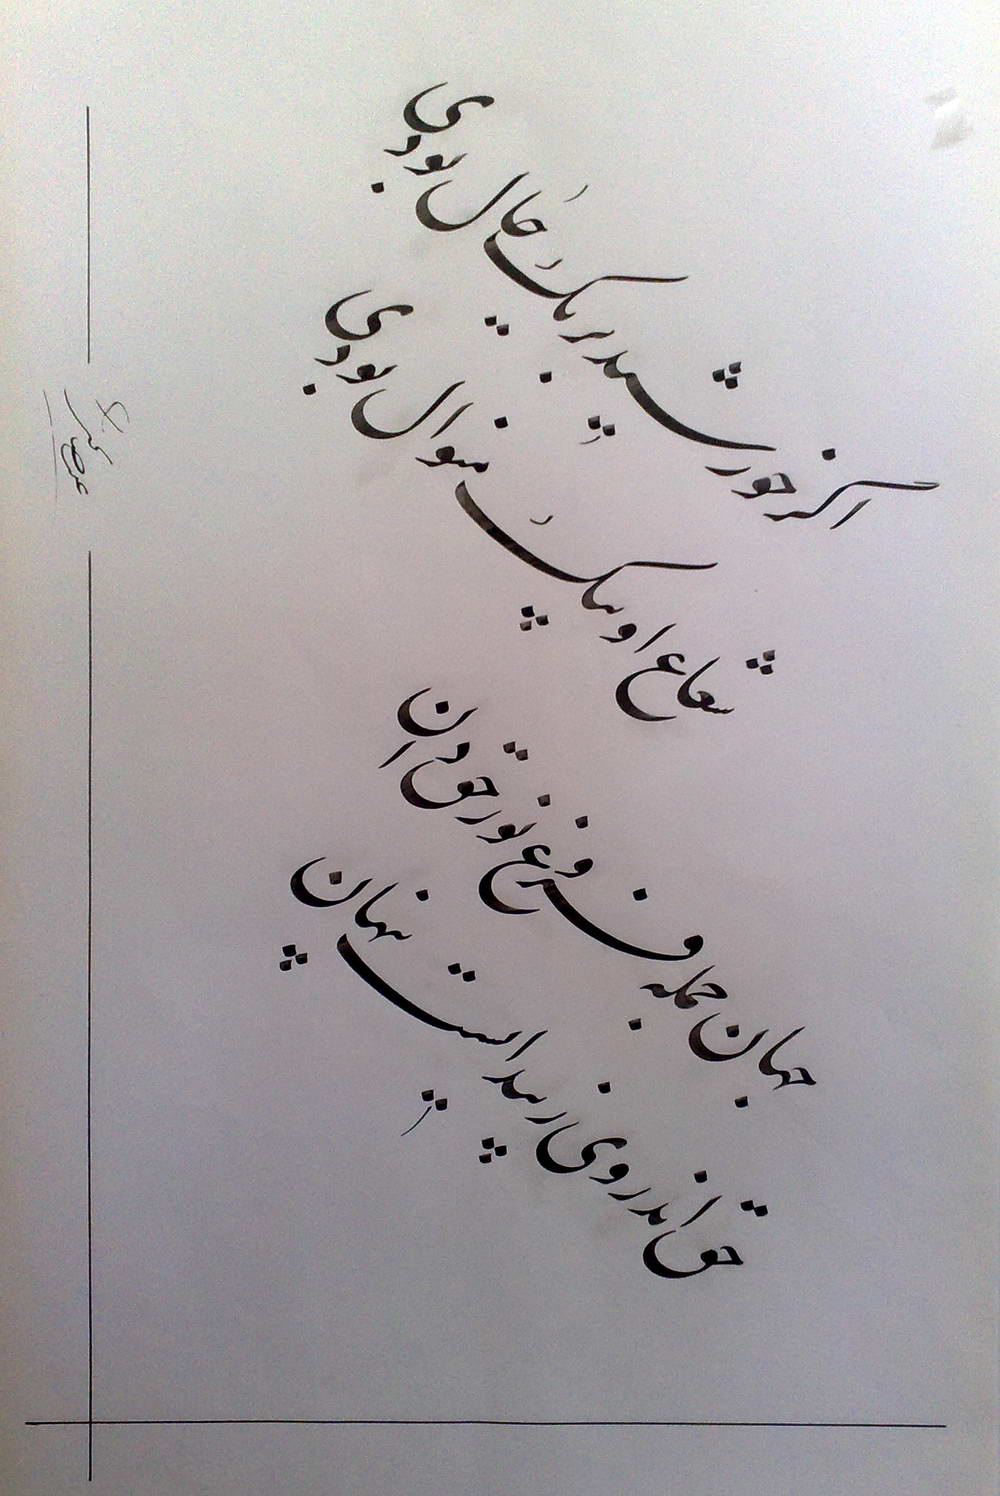 اگر خورشید بر یک حال بودی
شعاع او به یک منوال بودی
جهان جمله فروغ نور حق دان
حق اندر وی ز پیداییست پنهان